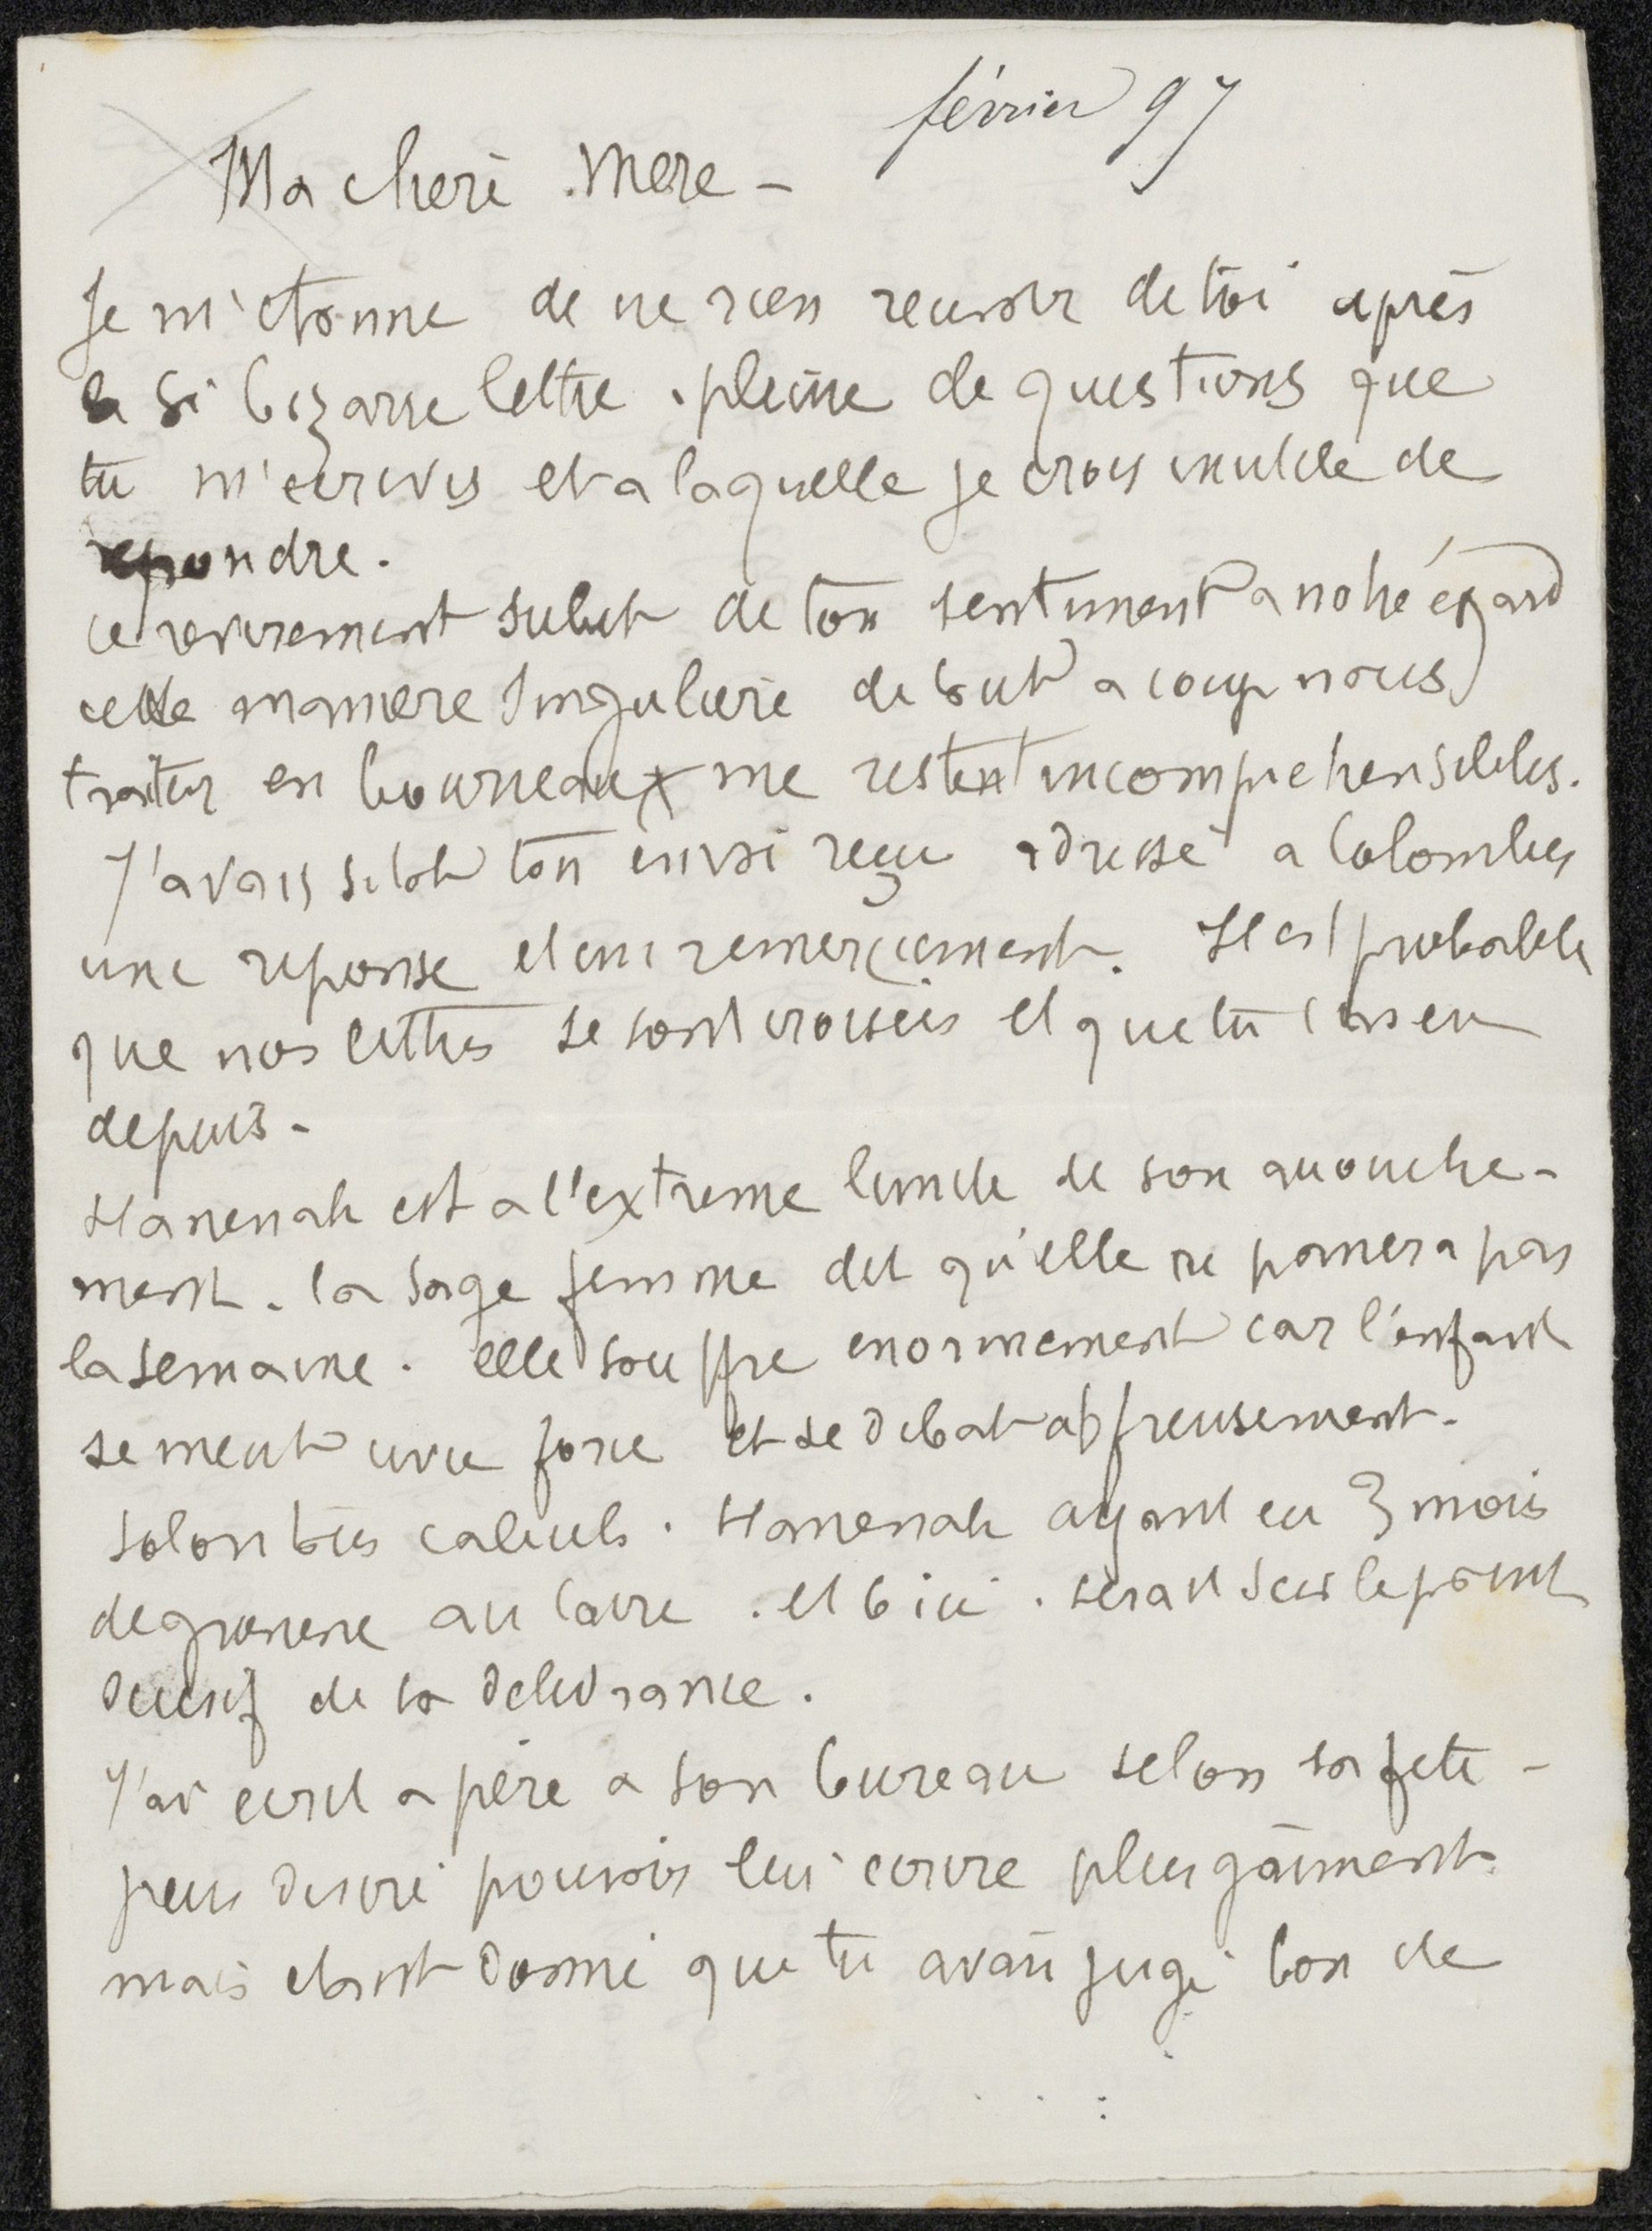 février 97
Ma cheré Mere -
Je m'etonne de ne rien recevoir de toi après
la si bizarre lettre . pleine de questions que
tu m'ecrivis et a laquelle je crois inutile de
repondre.
ce revirement subit de ton sentiment a notre égard
cette maniere singulieré de but a coup nous
traiter en bourreaux me restent incomprehensibles.
J'avais sitot ton envoi reçu adressé a Colombes
une reponse et un remerçiement. Il est probable
que nos lettres se sont croisées et que tu l'as eu
depuis -
Hanenah est a l'extreme limite de son accouche-
ment. la sage femme dit qu'elle ne passera pas
la semaine. elle souffre enormement car l'enfant
se meut avec force et se debat affreusement.
solon tes calculs . Hanenah ayant eu 3 mois
de grossesse au Caire . et 6 ici . serait sur le point
decisif de la delivrance.
J'ai ecrit a père a son bureau selon sa fete -
pouvois lui ecrire plus gaiment.
mais etant donné que tu avais jugé bon de